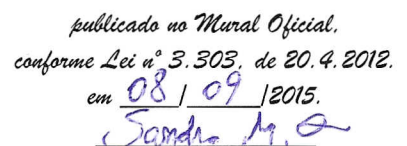 publicado no Mural Oficial,
conforme Lei nº 3.303, de 20.4.2012.
em 08 / 09 /2015.
Sandra M.